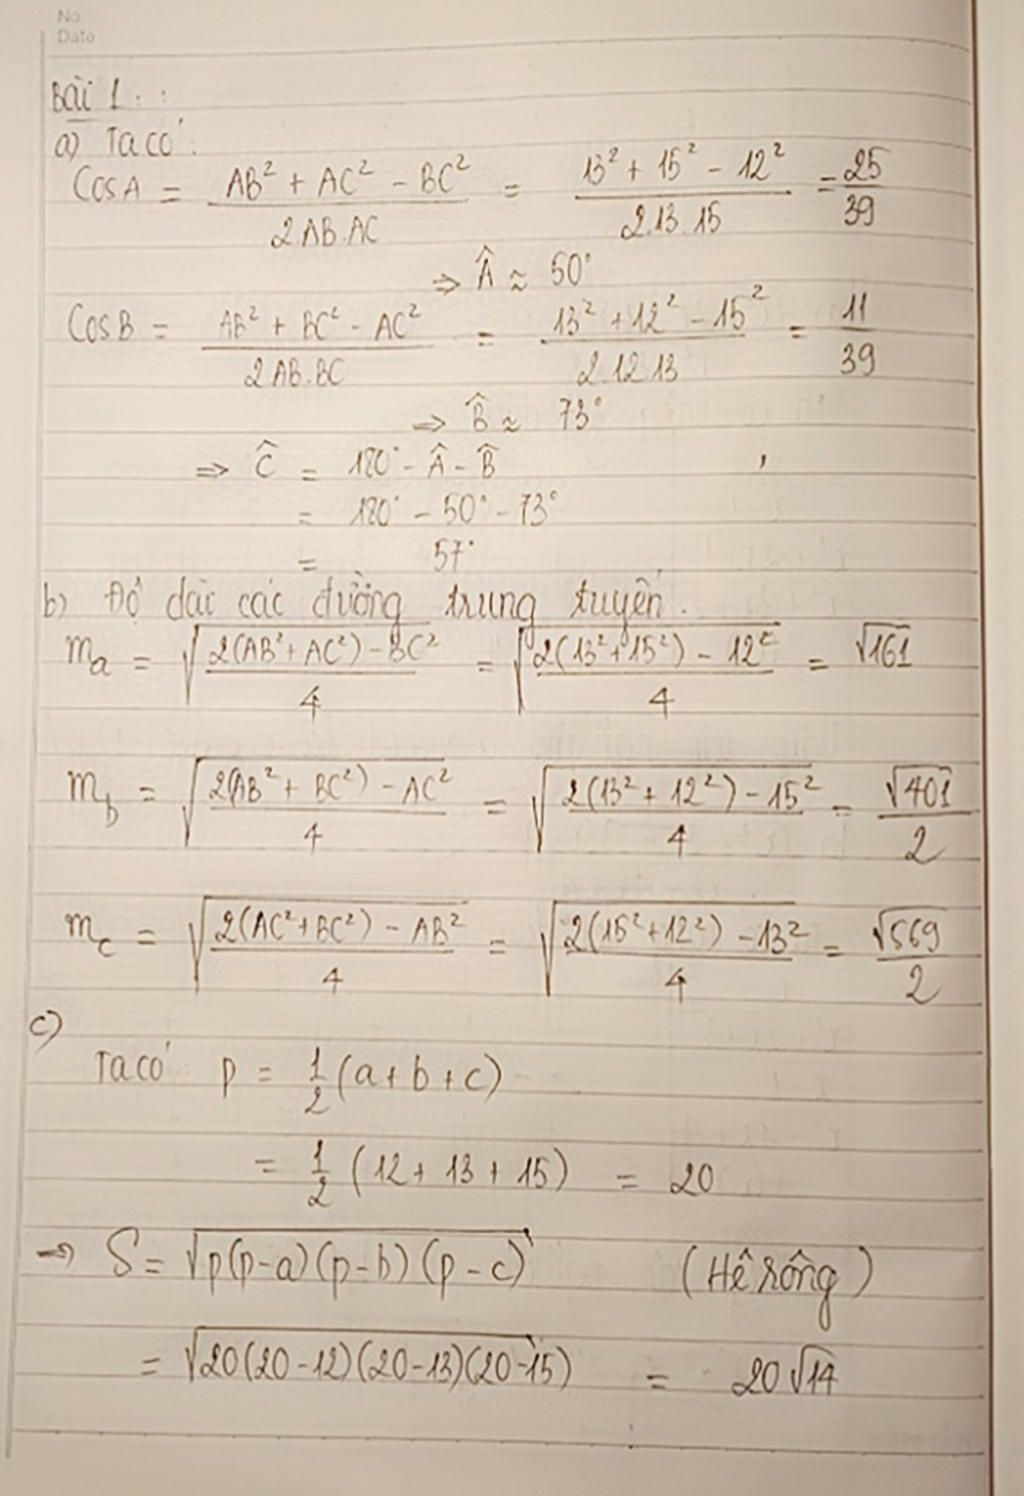 No.
Date
Bài 1 : :
a) Ta có :
CosA = (AB² + AC² - BC²) / (2.AB.AC) = (13² + 15² - 12²) / (2.13.15) = 25/39
⇒ Â ≈ 50°
CosB = (AB² + BC² - AC²) / (2AB.BC) = (13² + 12² - 15²) / (2.12.13) = 11/39
⇒ B̂ ≈ 73°
⇒ Ĉ = 180° - Â - B̂
= 180° - 50° - 73°
= 57°
b) Độ dài các đường trung tuyến.
mₐ = √((2(AB² + AC²) - BC²) / 4) = √((2(13² + 15²) - 12²) / 4) = √161
m_b = √((2(AB² + BC²) - AC²) / 4) = √((2(13² + 12²) - 15²) / 4) = √401 / 2
m_c = √((2(AC² + BC²) - AB²) / 4) = √((2(15² + 12²) - 13²) / 4) = √569 / 2
c)
Ta có : p = 1/2 (a + b + c)
= 1/2 (12 + 13 + 15) = 20
⇒ S = √(p(p-a)(p-b)(p-c)) (Hê rông)
= √(20(20-12)(20-13)(20-15)) = 20√14